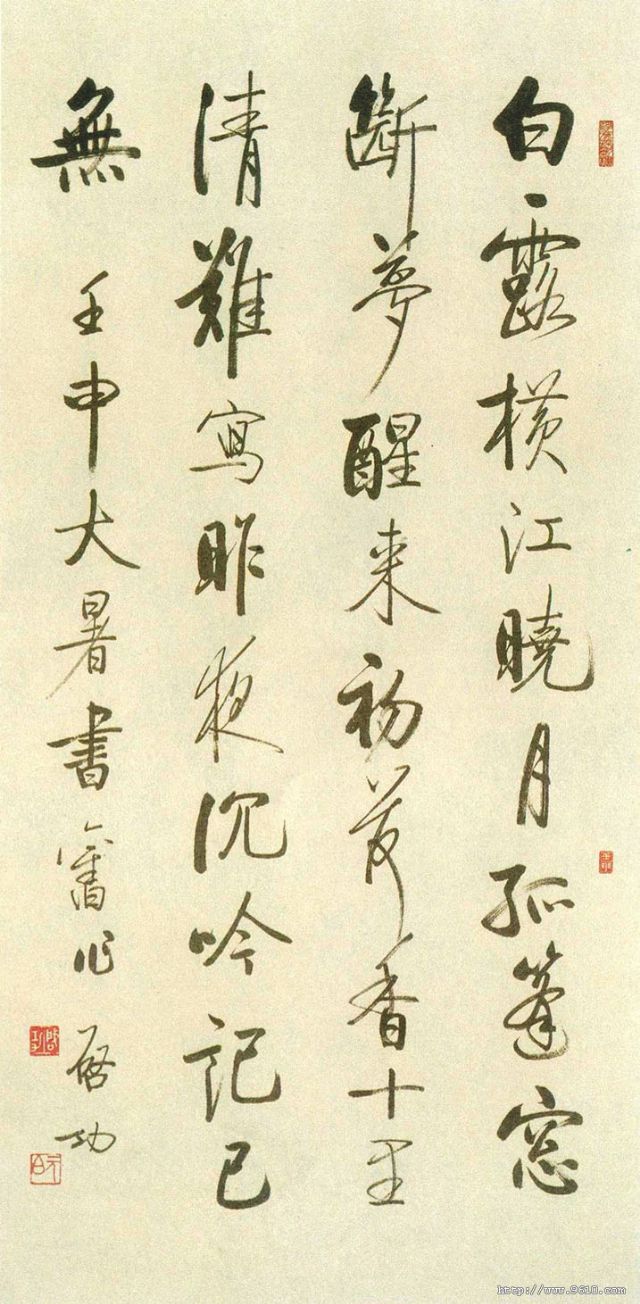 白露横江曉月孤篷窓
斷夢醒来初荷香十里
清難寫昨夜沉吟記已
無 壬申大暑書舊作 啟功
啟功
元白
http://www.9610.com